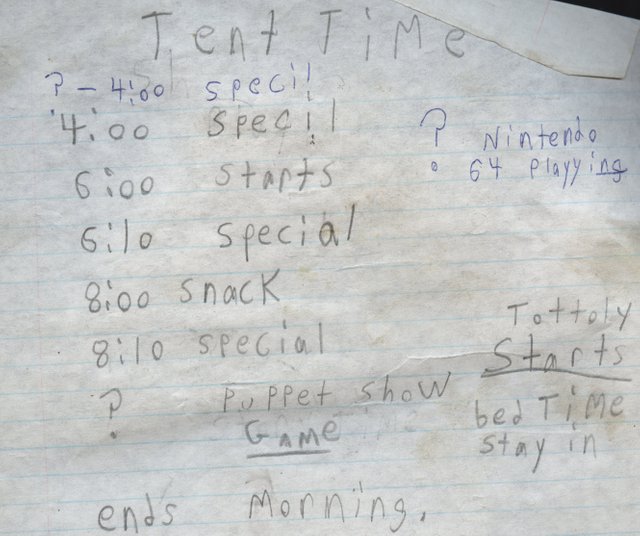 Tent TiMe
? - 4:00 specil
4:00 specil
? Nintendo
64 playying
6:00 starts
6:10 special
8:00 snack
8:10 special
? puppet show
GaMe
Tottoly
Starts
bed TiMe
stay in
ends Morning.